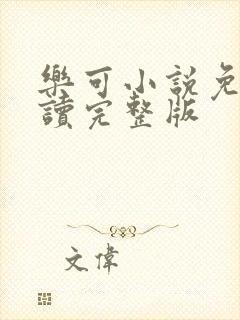 樂可小說免
讀完整版
文偉